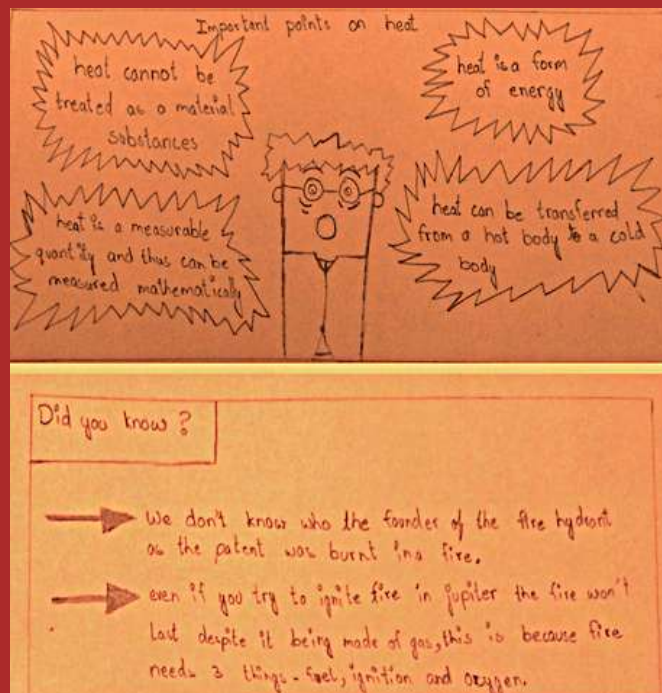 Important points on heat
heat cannot be
treated as a material
substances
heat is a form
of energy
heat is a measurable
quantity and thus can be
measured mathematically
heat can be transferred
from a hot body to a cold
body
Did you know?
We don't know who the founder of the fire hydrant
as the patent was burnt in a fire.
even if you try to ignite fire in jupiter the fire won't
last despite it being made of gas, this is because fire
needs 3 things - fuel, ignition and oxygen.